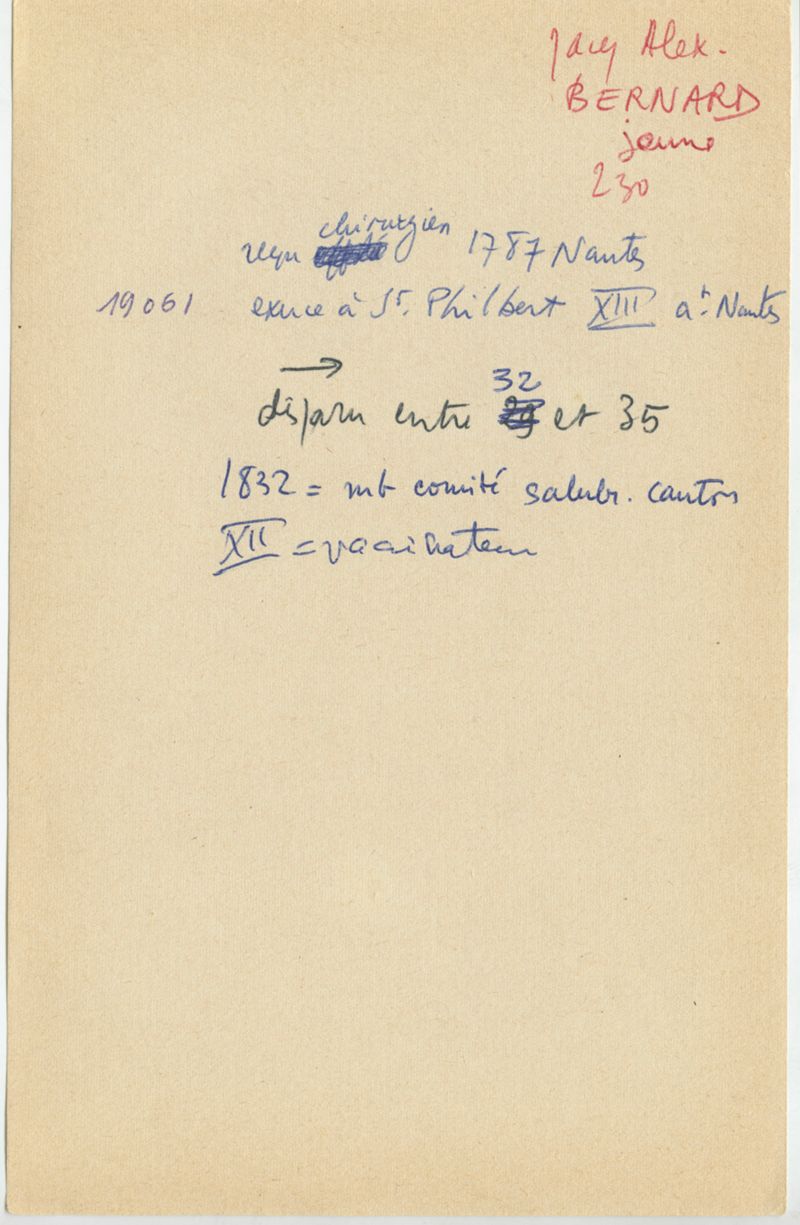 Jacq Alex.
BERNARD
jeune
230
chirurgien
reçu 1787 Nantes
19061 exerce à St. Philbert XIII at Nantes
→
32
disparu entre et 35
1832 = mb comité salubr. canton
XII = vaccinateur